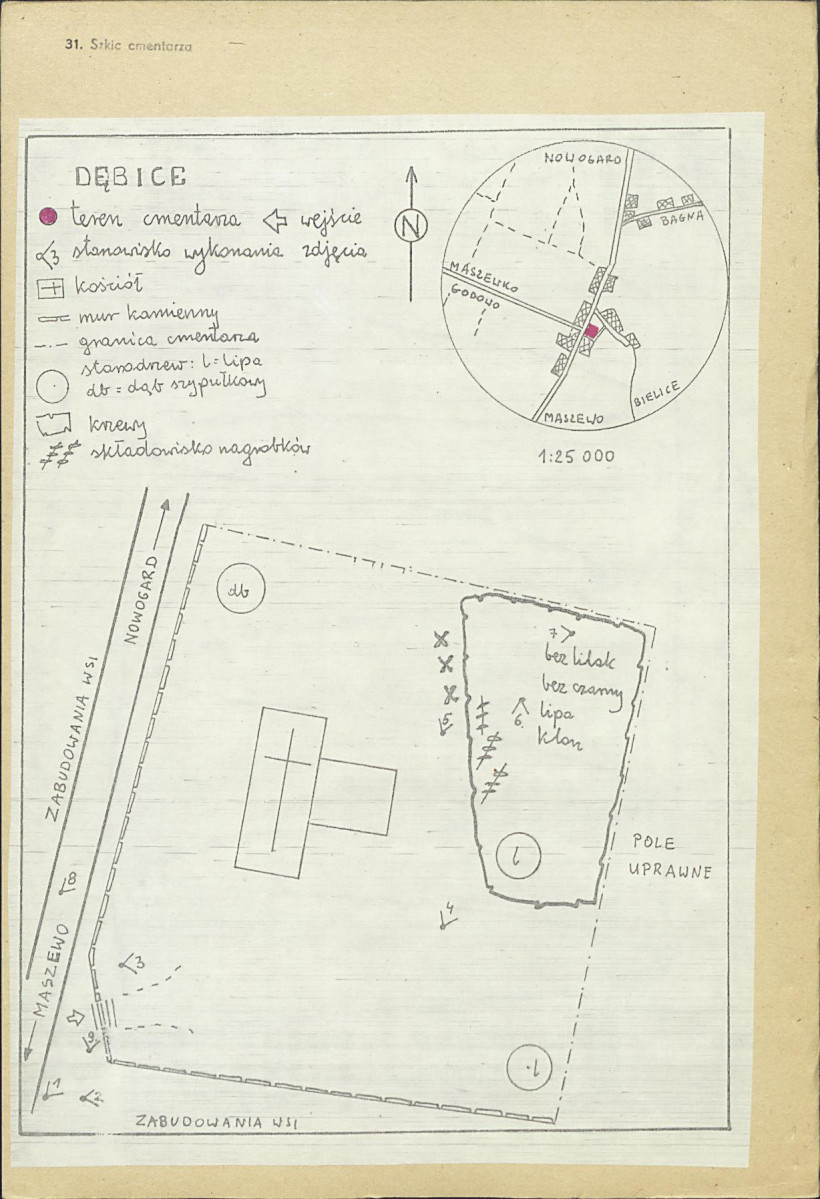 31. Szkic cmentarza
DĘBICE
teren cmentarza wejście
3 stanowisko wykonania zdjęcia
kościół
mur kamienny
granica cmentarza
starodrzew: l = lipa
db = dąb szypułkowy
krzewy
składowisko nagrobków
N
NOWOGARD
BAGNA
MASZEWKO
GODOWO
BIELICE
MASZEWO
1:25 000
NOWOGARD
ZABUDOWANIA WSI
db
7
bez lilak
bez czarny
6 lipa
klon
5
l
POLE
UPRAWNE
8
4
MASZEWO
3
9
l
1
2
ZABUDOWANIA WSI